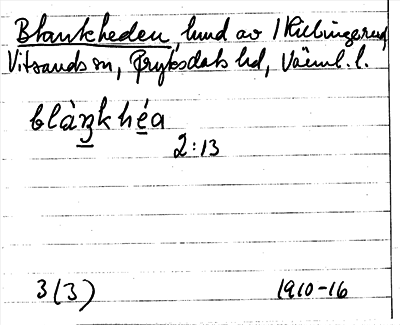 Blankheden, lund av 1 Kilbingerud,
Vitsands sn, Fryksdals hd, Värml. l.
blàŋkhéa
2:13
3(3) 1910-16